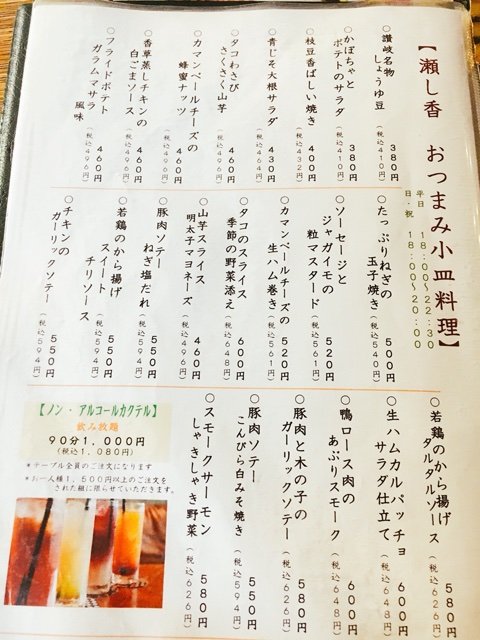 【瀬し香 おつまみ小皿料理】
平日 18:00〜22:30
日・祝 18:00〜20:00
○讃岐名物
しょうゆ豆
380円
(税込410円)
○かぼちゃと
ポテトのサラダ
380円
(税込410円)
○枝豆香ばしい焼き
400円
(税込432円)
○青じそ大根サラダ
430円
(税込464円)
○タコわさび
さくさく山芋
460円
(税込496円)
○カマンベールチーズの
蜂蜜ナッツ
460円
(税込496円)
○香草蒸しチキンの
白ごまソース
460円
(税込496円)
○フライドポテト
ガラムマサラ
風味
460円
(税込496円)
○たっぷりねぎの
玉子焼き
500円
(税込540円)
○ソーセージと
ジャガイモの
粒マスタード
520円
(税込561円)
○カマンベールチーズの
生ハム巻き
520円
(税込561円)
○タコのスライス
季節の野菜添え
600円
(税込648円)
○山芋スライス
明太子マヨネーズ
460円
(税込496円)
○豚肉ソテー
ねぎ塩だれ
550円
(税込594円)
○若鶏のから揚げ
スイート
チリソース
550円
(税込594円)
○チキンの
ガーリックソテー
550円
(税込594円)
○若鶏のから揚げ
タルタルソース
580円
(税込626円)
○生ハムカルパッチョ
サラダ仕立て
600円
(税込648円)
○鴨ロース肉の
あぶりスモーク
600円
(税込648円)
○豚肉と木の子の
ガーリックソテー
580円
(税込626円)
○豚肉ソテー
こんぴら白みそ焼き
550円
(税込594円)
○スモークサーモン
しゃきしゃき野菜
580円
(税込626円)
【ノン・アルコールカクテル】
飲み放題
90分1,000円
(税込1,080円)
*テーブル全員のご注文になります
*お一人様1,500円以上のご注文を
された組に限らせていただきます。